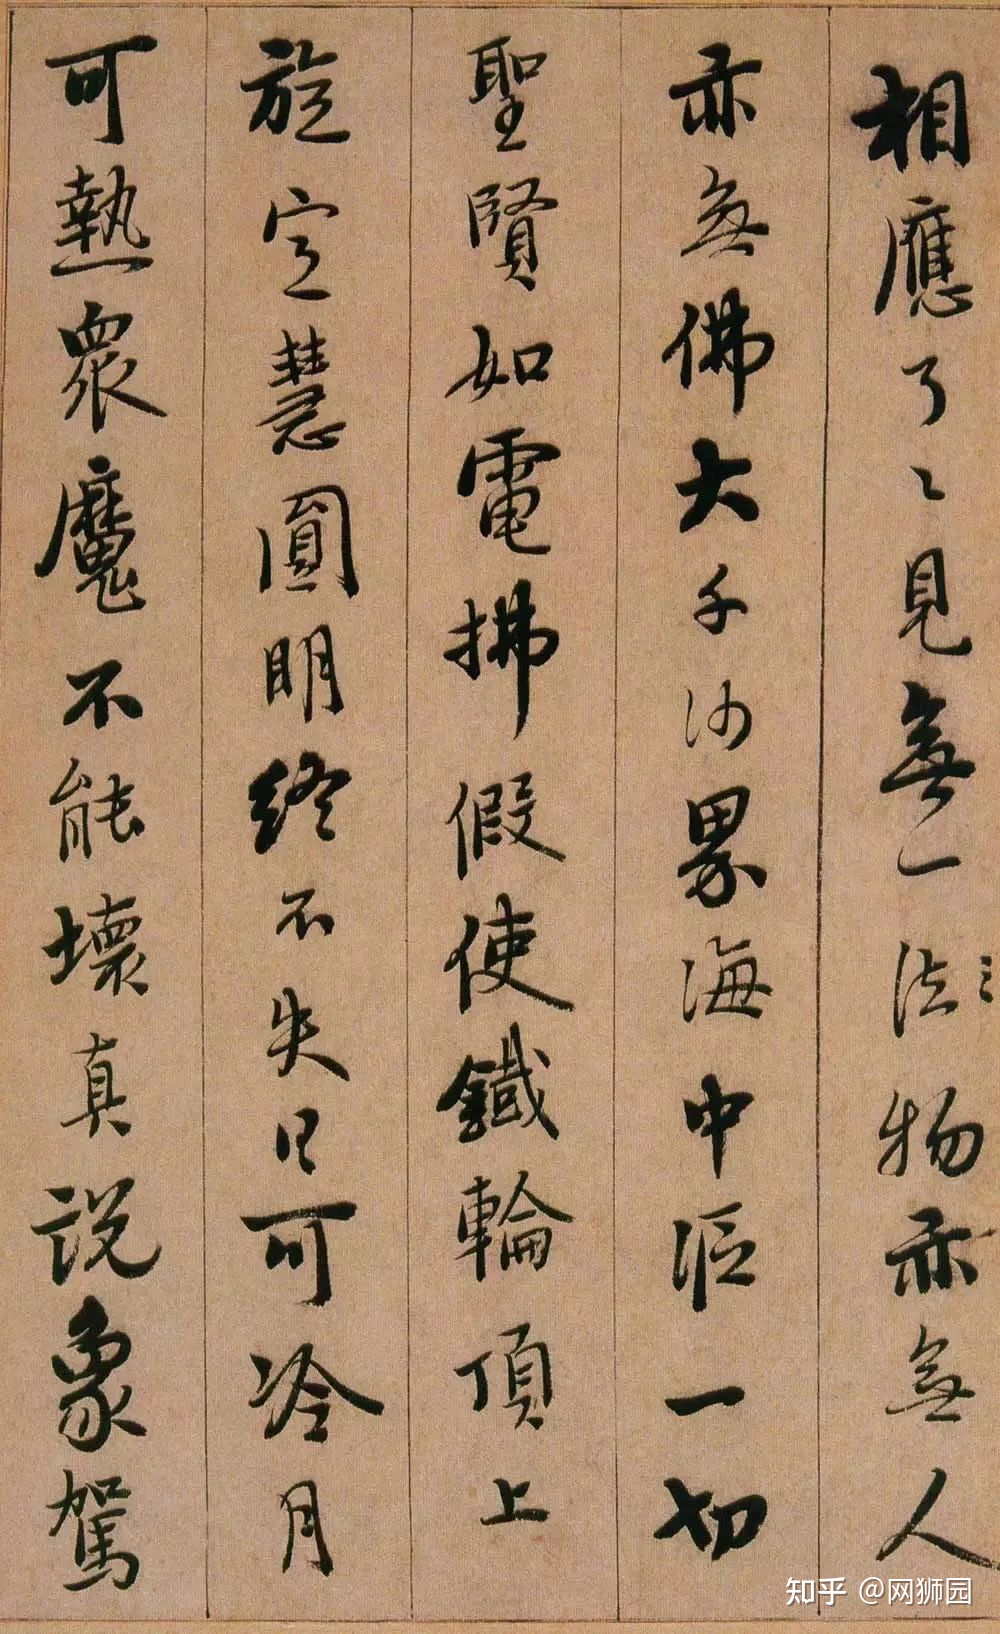 相應了〻見無一法物亦無人
亦無佛大千沙界海中漚一切
聖賢如電拂假使鐵輪頂上
旋定慧圓明終不失日可冷月
可熱衆魔不能壞真説象駕
知乎 @网狮园